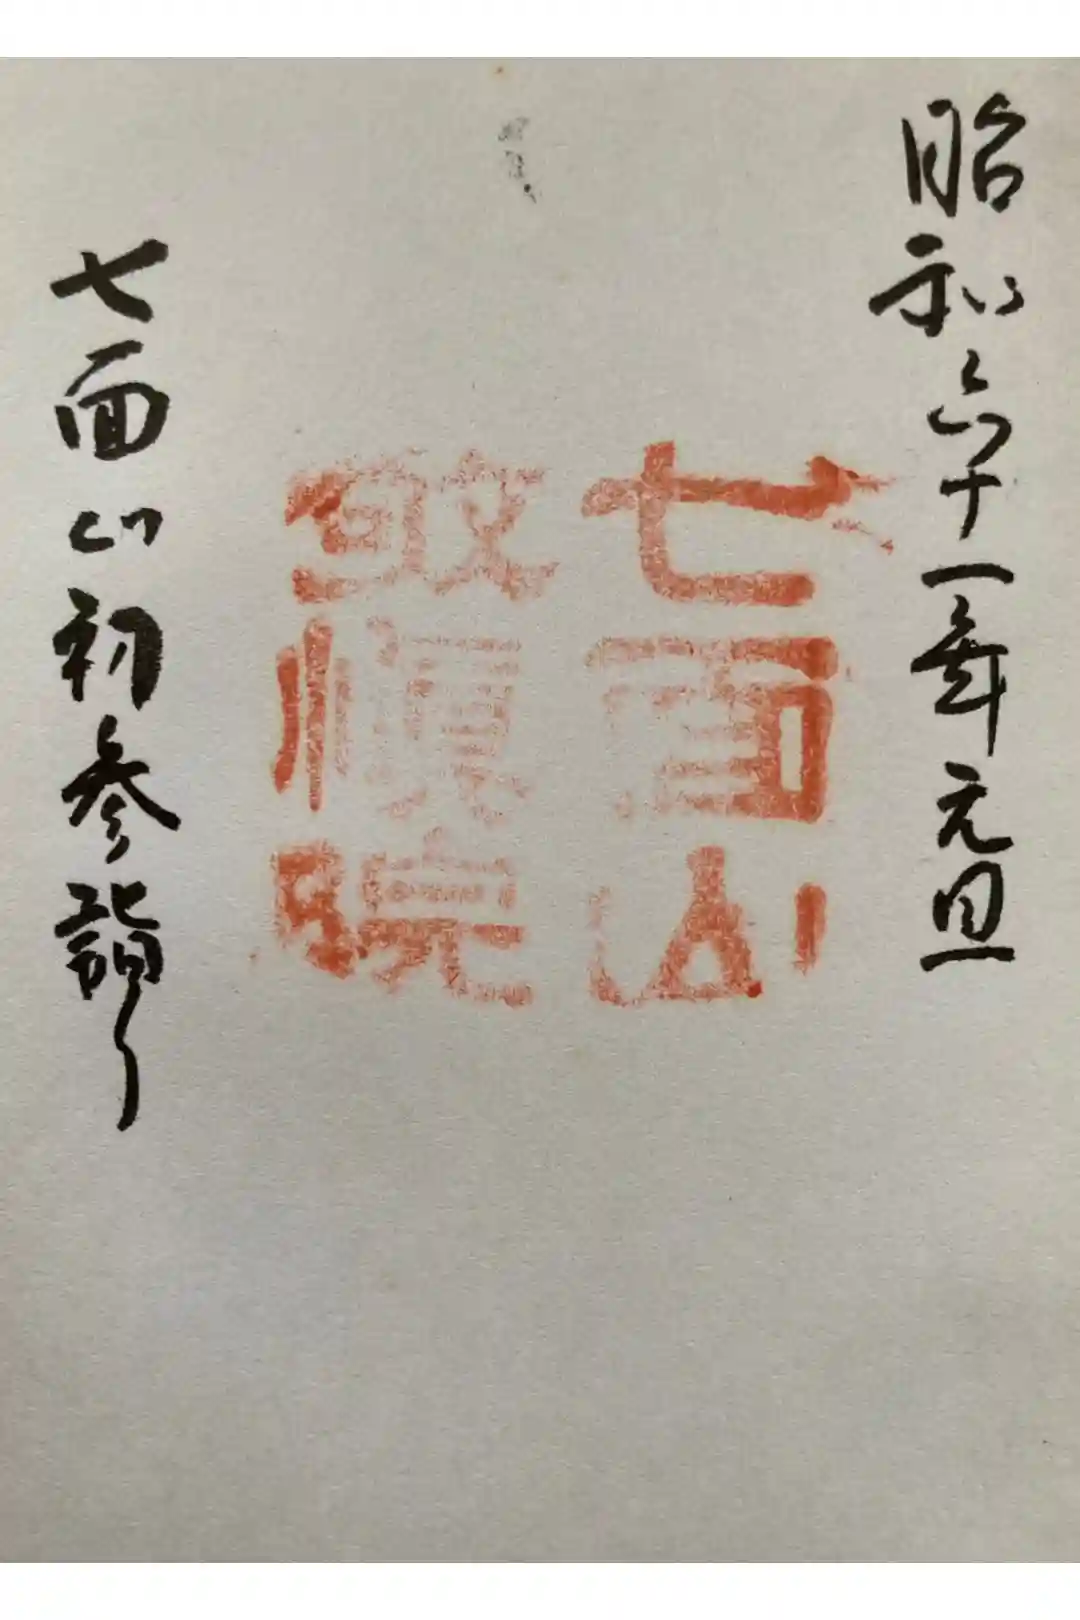 昭和六十一年元旦
七面山
敬慎院
七面山初参詣